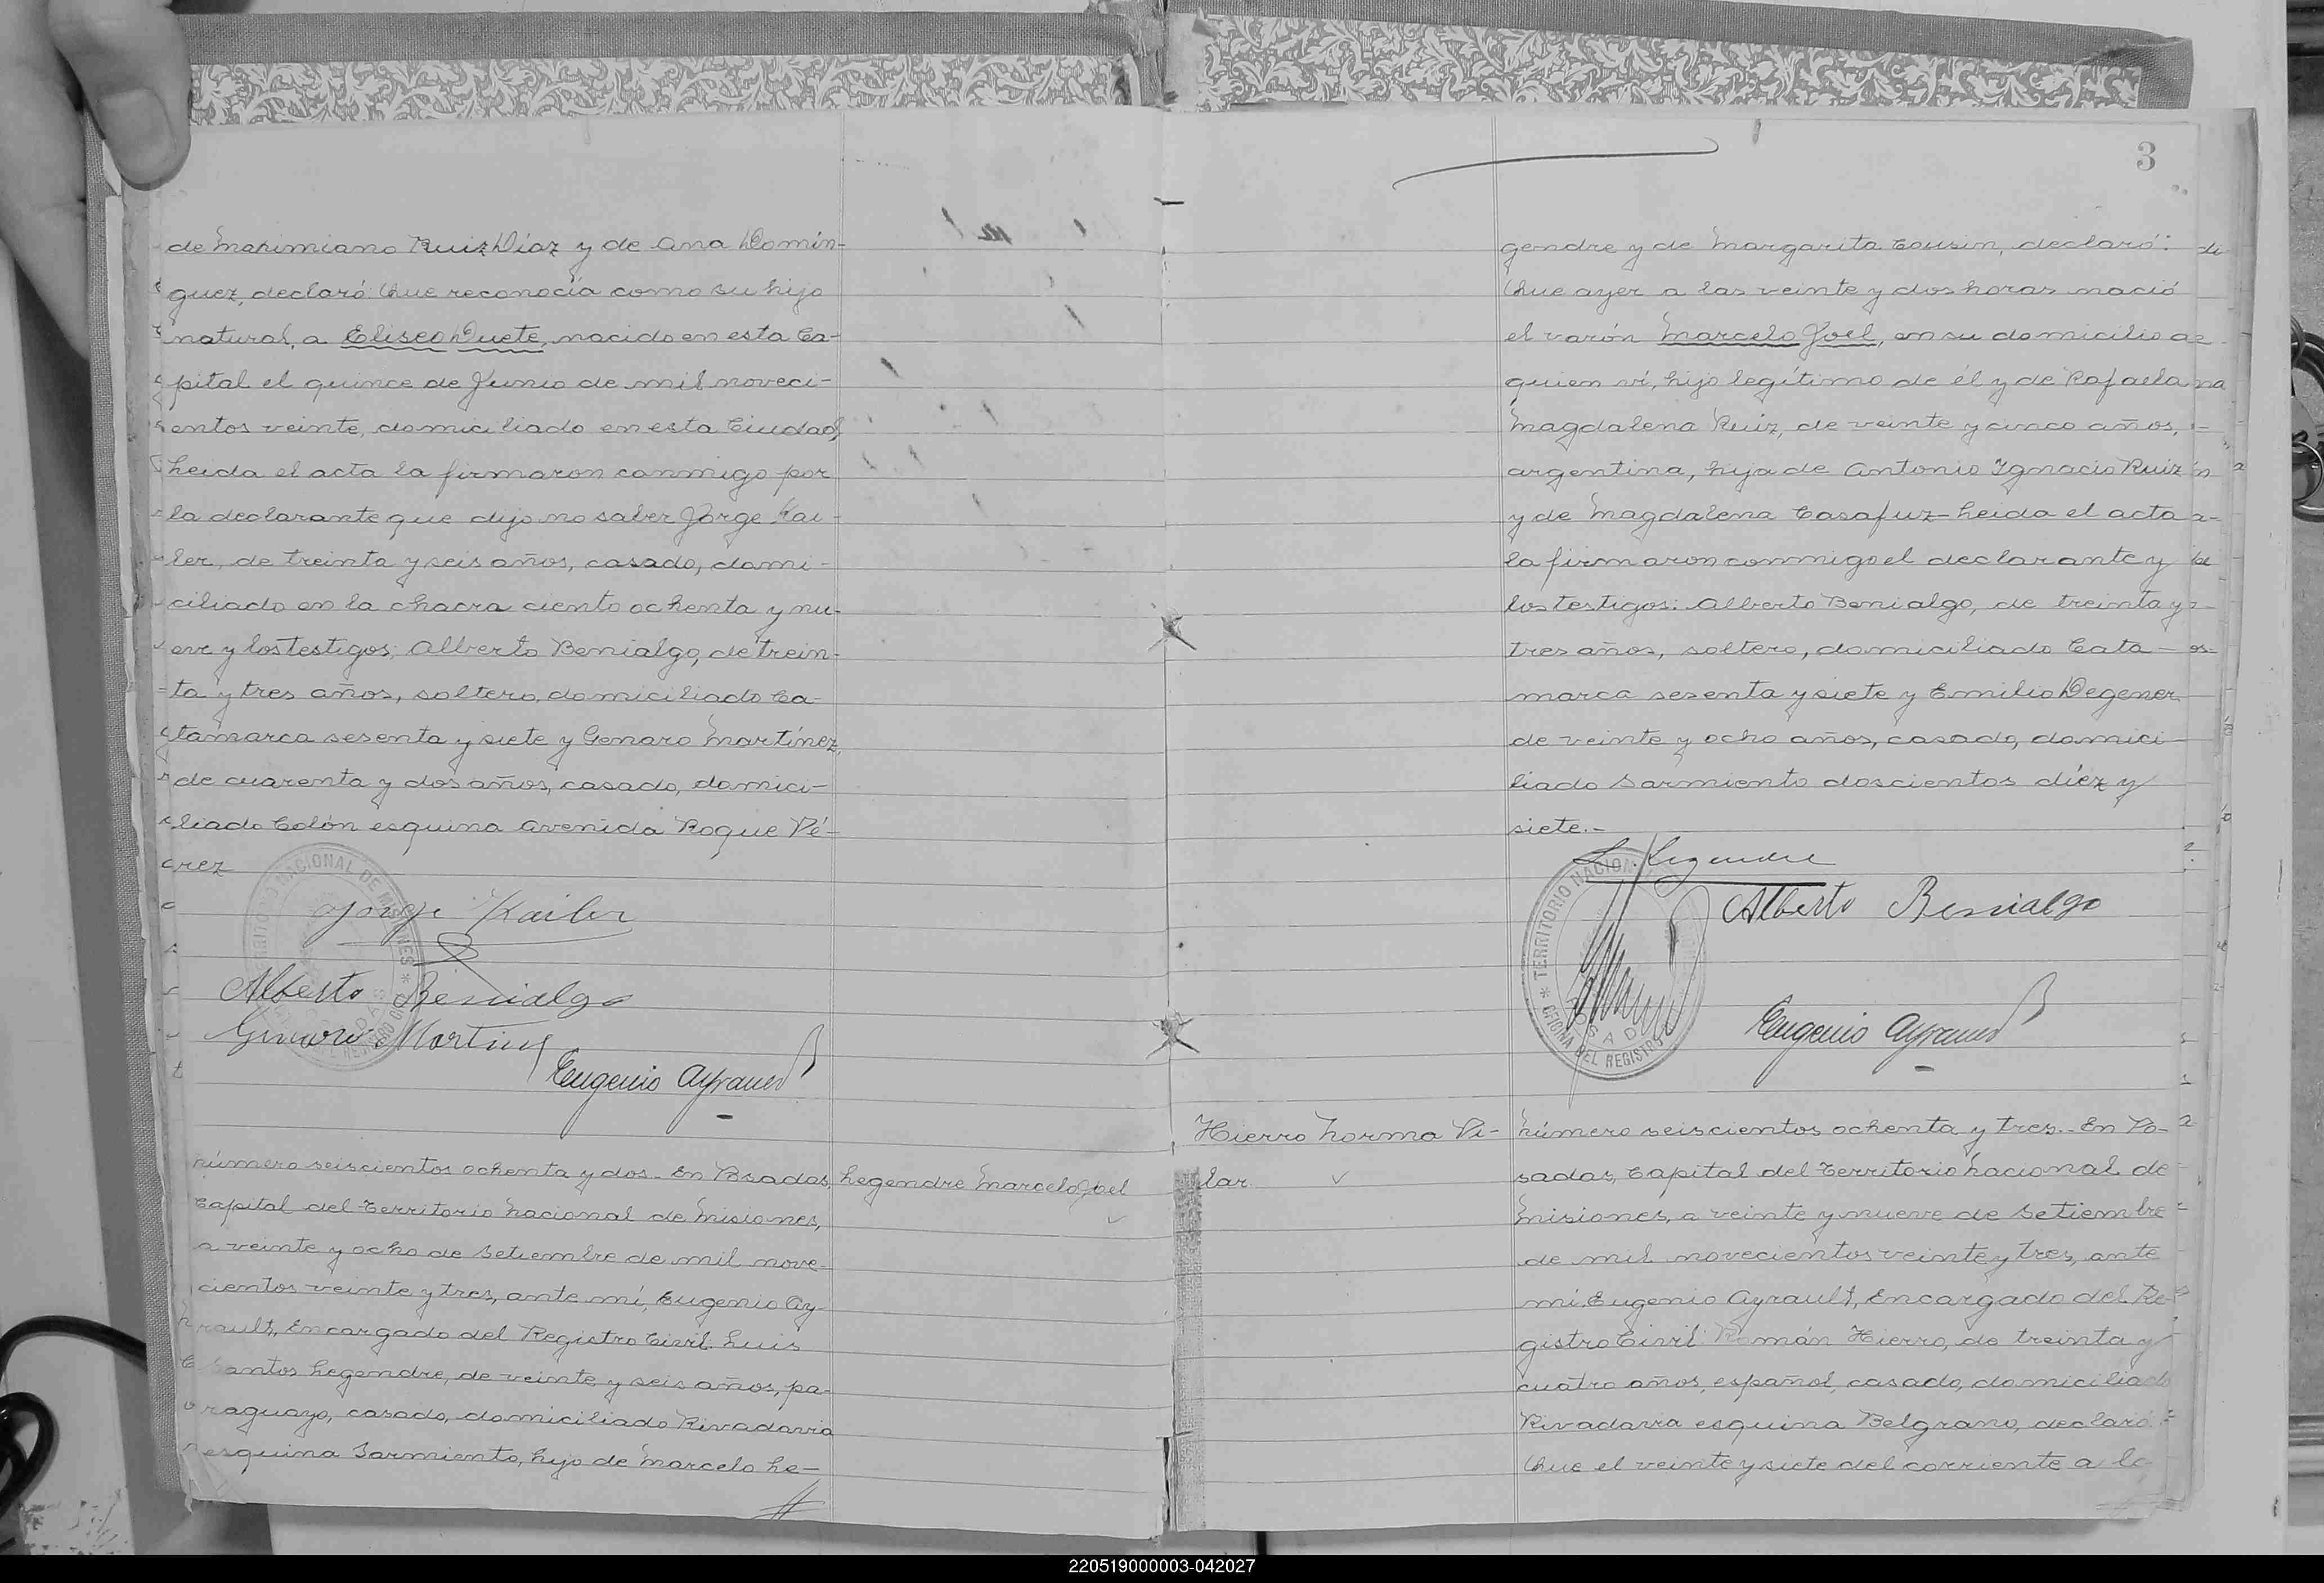 de Maximiano Ruiz Díaz y de Ana Domín-
guez, declaró: Que reconocía como su hijo
natural, a Eliseo Duete, nacido en esta Ca-
pital el quince de Junio de mil noveci-
entos veinte, domiciliado en esta Ciudad,
Leida el acta la firmaron conmigo por
la declarante que dijo no saber Jorge Kai-
ler, de treinta y seis años, casado, domi-
ciliado en la chacra ciento ochenta y nu-
eve y los testigos: Alberto Benialgo, de trein-
ta y tres años, soltero, domiciliado Ca-
tamarca sesenta y siete y Genaro Martínez,
de cuarenta y dos años, casado, domici-
liado Colón esquina Avenida Roque Pé-
rez
Jorge Kailer
Alberto Benialgo
Genaro Martinez
Eugenio Ayrault
Legendre Marcelo Joel
Número seiscientos ochenta y dos.- En Posadas,
Capital del Territorio Nacional de Misiones,
a veinte y ocho de Setiembre de mil nove-
cientos veinte y tres, ante mí, Eugenio Ay-
rault, Encargado del Registro Civil: Luis
Santos Legendre, de veinte y seis años, pa-
raguayo, casado, domiciliado Rivadavia
esquina Sarmiento, hijo de Marcelo Le-
3
gendre y de Margarita Cousin, declaró:
Que ayer a las veinte y dos horas nació
el varón Marcelo Joel, en su domicilio a
quien ví, hijo legítimo de él y de Rafaela
Magdalena Ruiz, de veinte y cinco años,
argentina, hija de Antonio Ignacio Ruiz
y de Magdalena Casafuz- Leida el acta
la firmaron conmigo el declarante y
los testigos: Alberto Benialgo, de treinta y
tres años, soltero, domiciliado Cata-
marca sesenta y siete y Emilio Degener
de veinte y ocho años, casado, domici-
liado Sarmiento doscientos diez y
siete.-
L. Legendre
Alberto Benialgo
TERRITORIO NACION
OFICINA DEL REGISTRO
Eugenio Ayrault
Hierro Norma Pi-
lar.
Número seiscientos ochenta y tres.- En Po-
sadas, Capital del Territorio Nacional de
Misiones, a veinte y nueve de Setiembre
de mil novecientos veinte y tres, ante
mí, Eugenio Ayrault, Encargado del Re-
gistro Civil: Román Hierro, de treinta y
cuatro años, español, casado, domiciliado
Rivadavia esquina Belgrano, declaró:
Que el veinte y siete del corriente a la
220519000003-042027